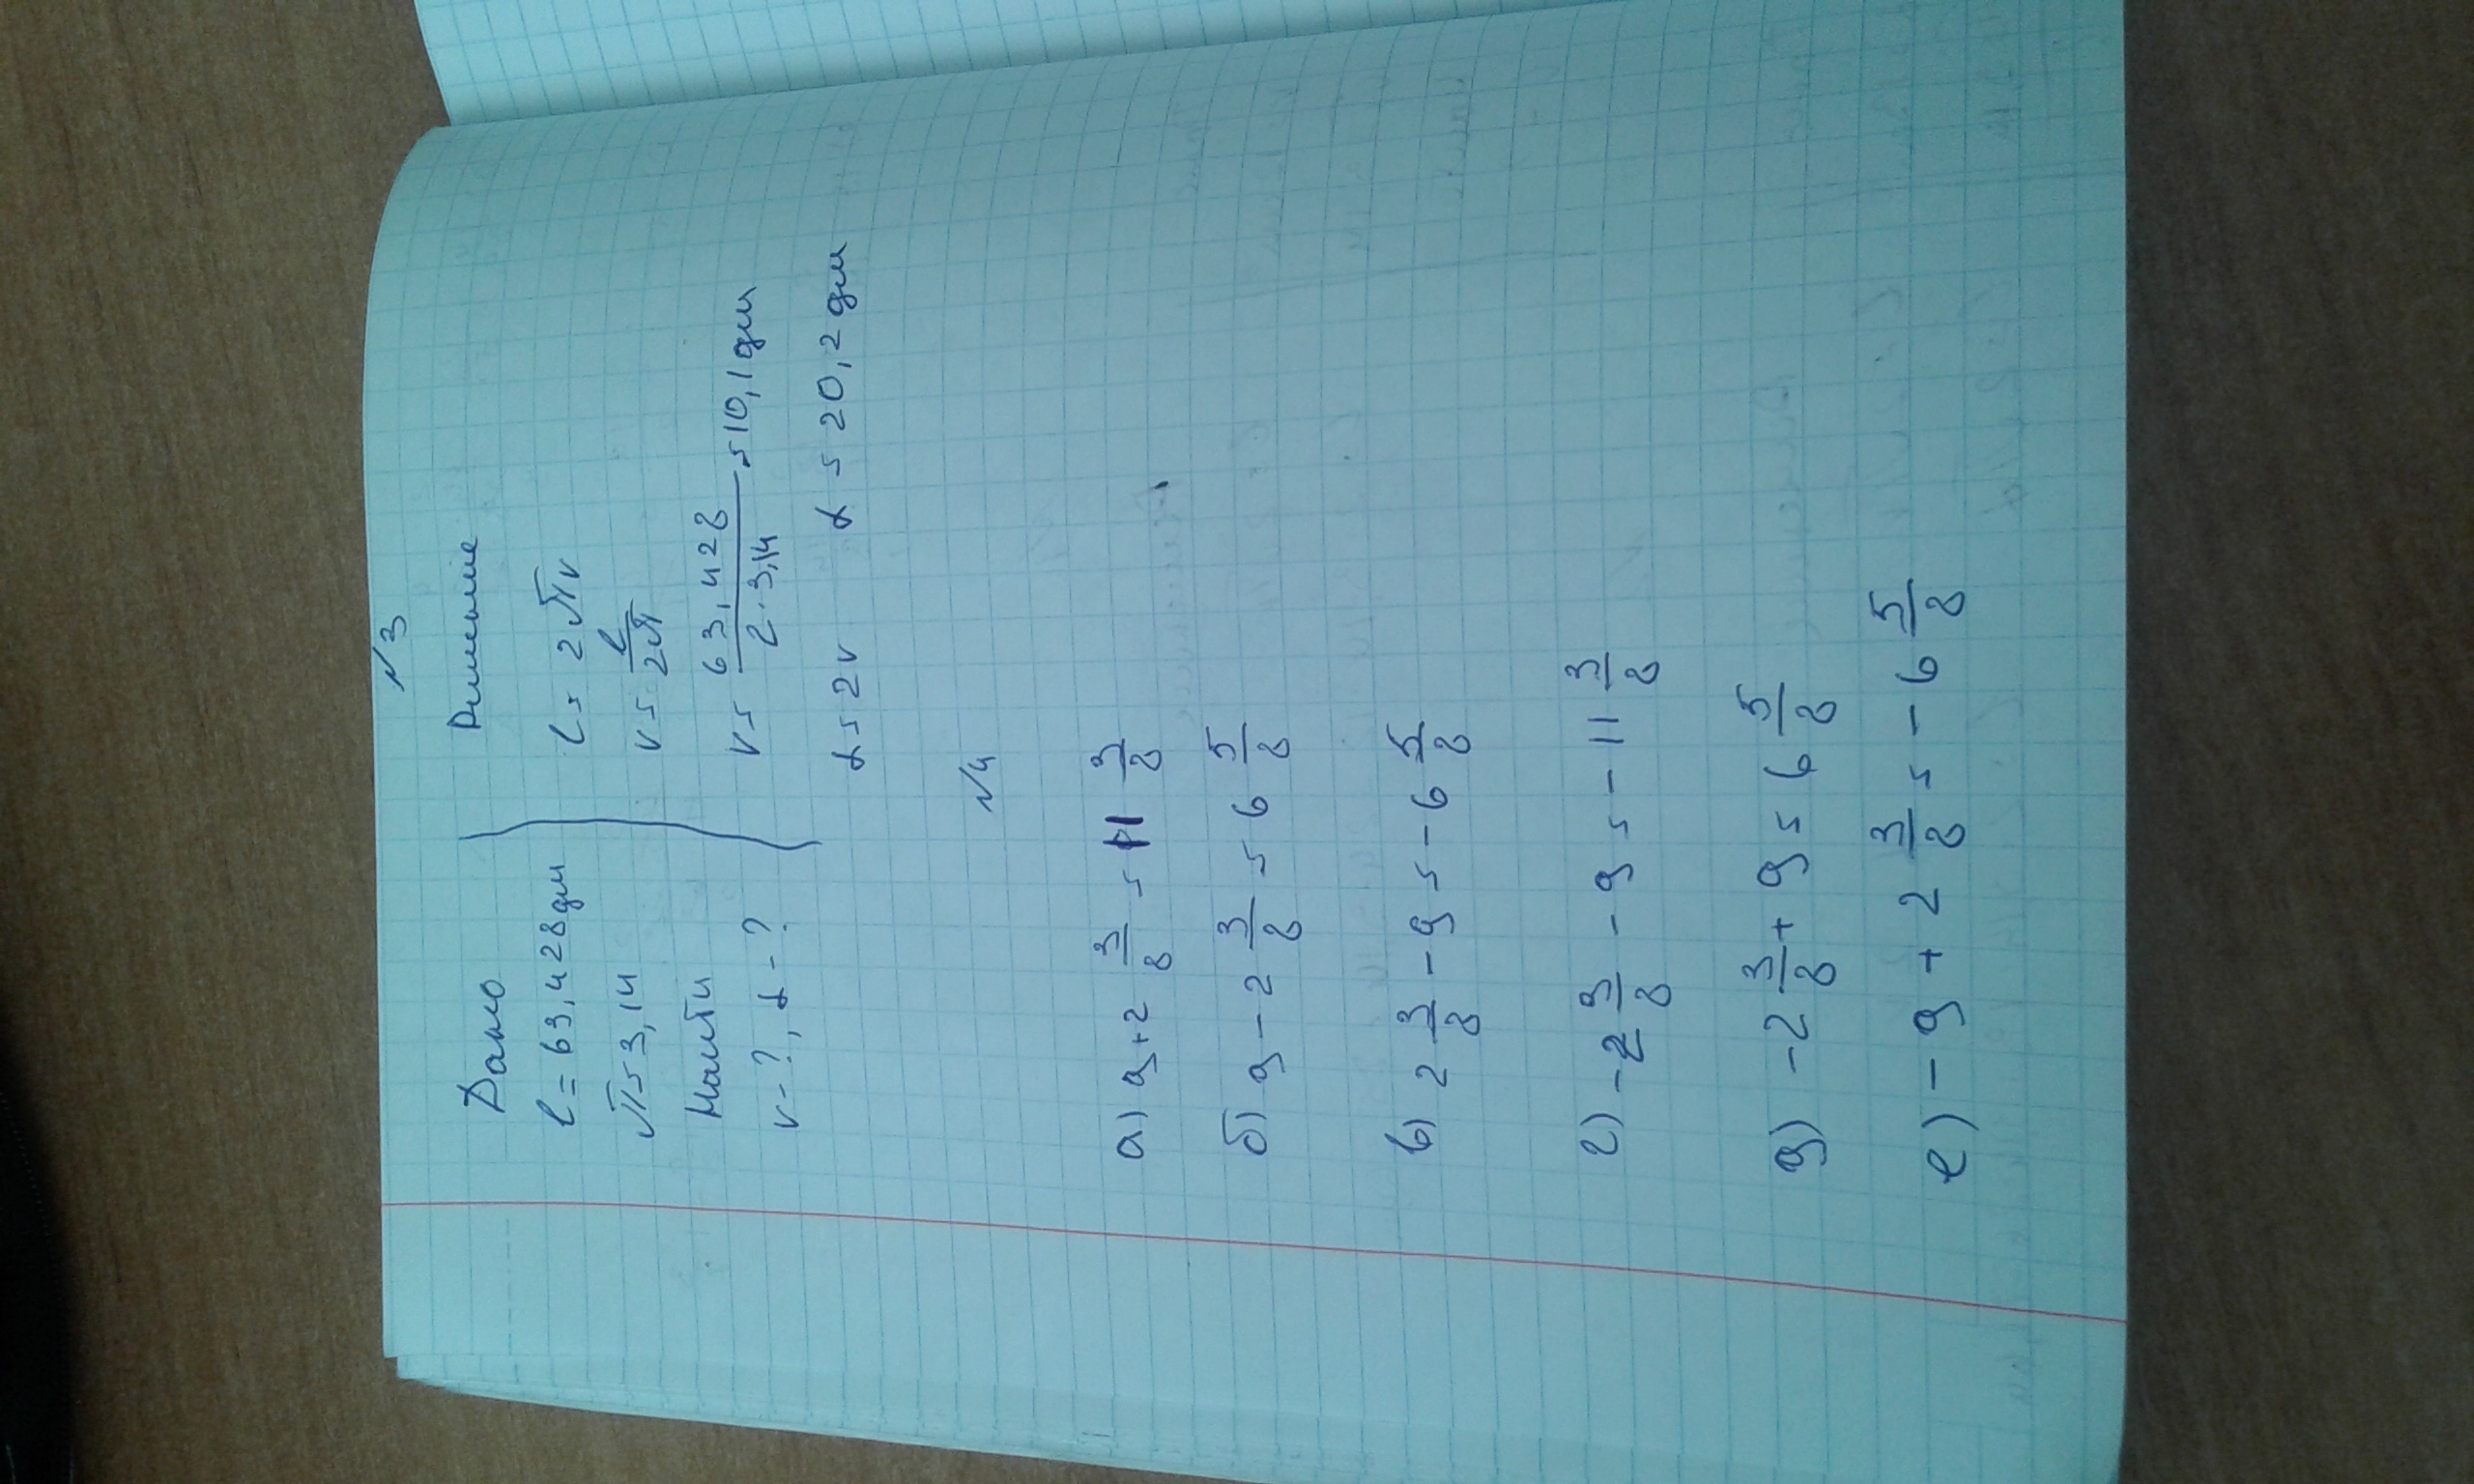 №3
Дано
Решение
l = 63,428дм
π = 3,14
Найти
r - ?, d - ?
l = 2πr
r = l/2π
r = 63,428/2·3,14 = 10,1дм
d = 2r d = 20,2дм
№4
а) 9 + 2 3/8 = 11 3/8
б) 9 - 2 3/8 = 6 5/8
в) 2 3/8 - 9 = - 6 5/8
г) -2 3/8 - 9 = - 11 3/8
д) -2 3/8 + 9 = 6 5/8
е) - 9 + 2 3/8 = - 6 5/8